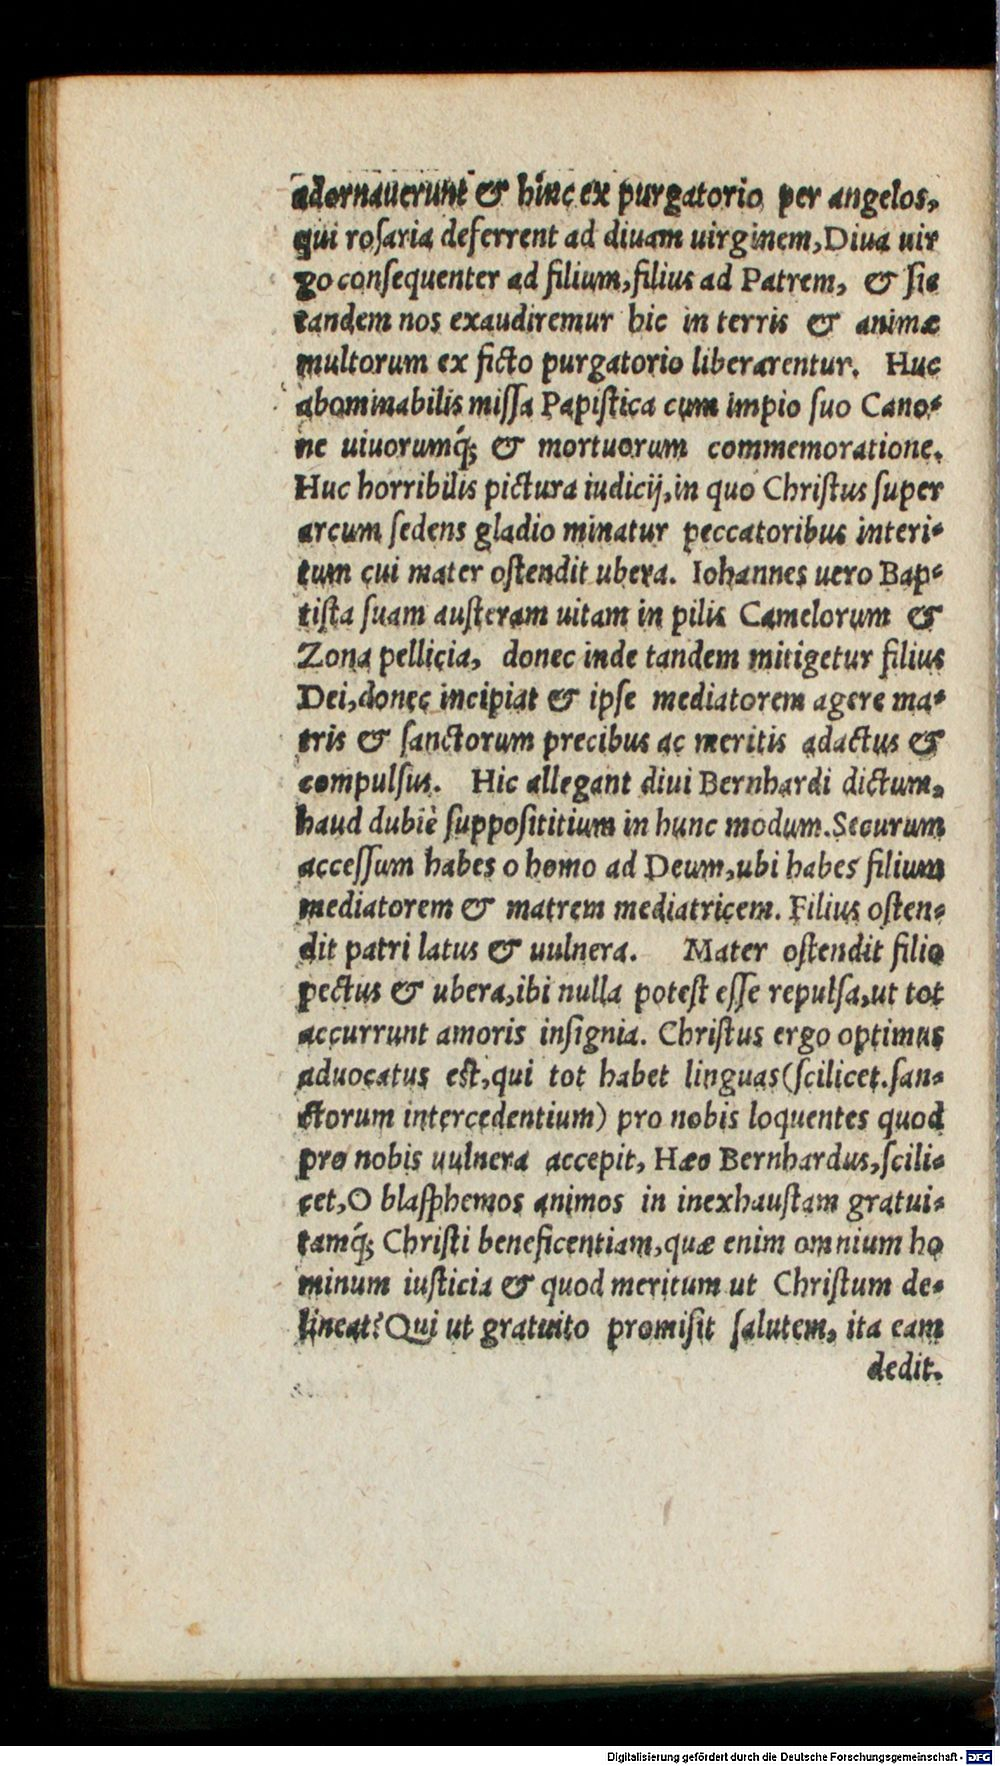 adornauerunt & hinc ex purgatorio per angelos,
qui rosaria deferrent ad diuam uirginem, Diua uir
go consequenter ad filium, filius ad Patrem, & sic
tandem nos exaudiremur hic in terris & animæ
multorum ex ficto purgatorio liberarentur. Huc
abominabilis missa Papistica cum impio suo Cano-
ne uiuorumq́; & mortuorum commemoratione.
Huc horribilis pictura iudicij, in quo Christus super
arcum sedens gladio minatur peccatoribus interi-
tum cui mater ostendit ubera. Iohannes uero Bap-
tista suam austeram uitam in pilis Camelorum &
Zona pellicia, donec inde tandem mitigetur filius
Dei, donec incipiat & ipse mediatorem agere ma-
tris & sanctorum precibus ac meritis adactus &
compulsus. Hic allegant diui Bernhardi dictum,
haud dubiè supposititium in hunc modum. Securum
accessum habes o homo ad Deum, ubi habes filium
mediatorem & matrem mediatricem. Filius osten-
dit patri latus & uulnera. Mater ostendit filio
pectus & ubera, ibi nulla potest esse repulsa, ut tot
accurrunt amoris insignia. Christus ergo optimus
aduocatus est, qui tot habet linguas (scilicet. san-
ctorum intercedentium) pro nobis loquentes quod
pro nobis uulnera accepit, Hæc Bernhardus, scili-
cet, O blasphemos animos in inexhaustam gratui-
tamq́; Christi beneficentiam, quæ enim omnium ho
minum iusticia & quod meritum ut Christum de-
lineat? Qui ut gratuito promisit salutem, ita eam
dedit.
Digitalisierung gefördert durch die Deutsche Forschungsgemeinschaft - DFG